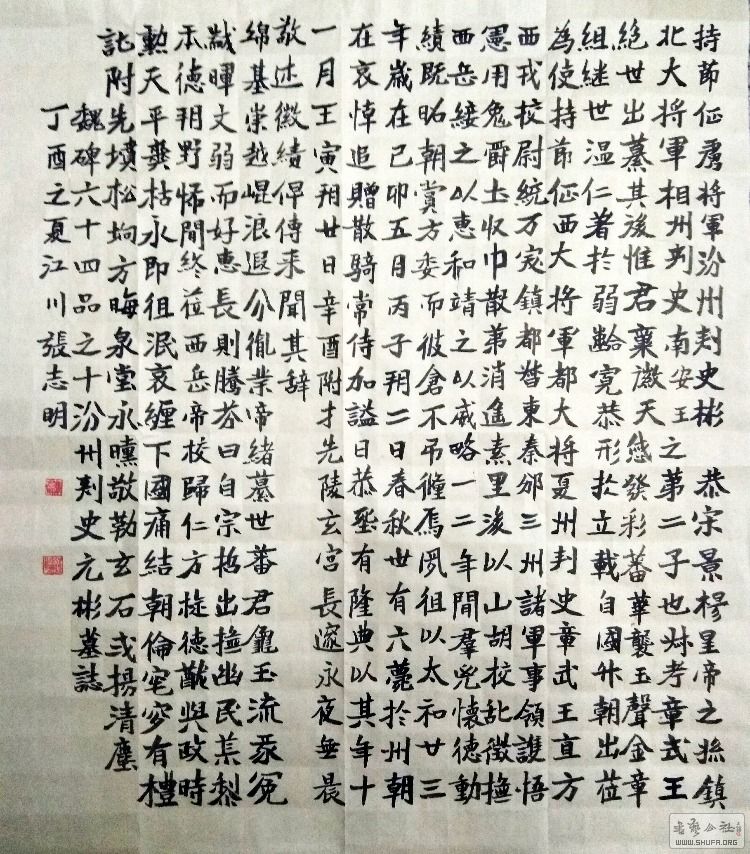 持節征虜將軍汾州刺史彬 恭宗景穆皇帝之孫鎮
北大將軍相州刺史南安王之第二子也叔考章武王
絕世出纂其後惟君稟徽天感發彩蕃華襲玉聲金章
組継世溫仁著於弱齡寬恭形於立載自國升朝出莅
為使持節征西大將軍都大將夏州刺史章武王直方
西戎校尉統万突鎮都督東秦邠三州諸軍事領護悟
憲用免爵土収巾散第消遙素里後以山胡校乱徵撫
西岳綏之以惠和靖之以威略一二年間羣兇懷德勳
績既昭朝賞方委而彼倉不吊殲焉夙徂以太和廿三
年歲在己卯五月丙子朔二日春秋卅有六薨於州朝
在哀悼追贈散騎常侍加謚曰恭 有隆典以其年十
一月壬寅朔廿日辛酉附才先陵玄宮長邃永夜無晨
敬述徽績俾傳来聞其辞
綿基崇越崐浪遐分胤業帝緒纂世蕃君龜玉流承冕
黻暉文弱而好惠長則騰芬曰自宗哲出撫幽民葉黎
禾德朔野怖聞終莅西岳帝校歸仁方旋德猷與政時
勲天平龔枯永即徂泯哀纏下國痛結朝倫窀穸有禮
託附先墳松埛方晦泉堂永曛敬勒玄石式揚清塵
魏碑六十四品之十汾州刺史元彬墓誌
丁酉之夏江川張志明
書藝公社
WWW.SHUFA.ORG